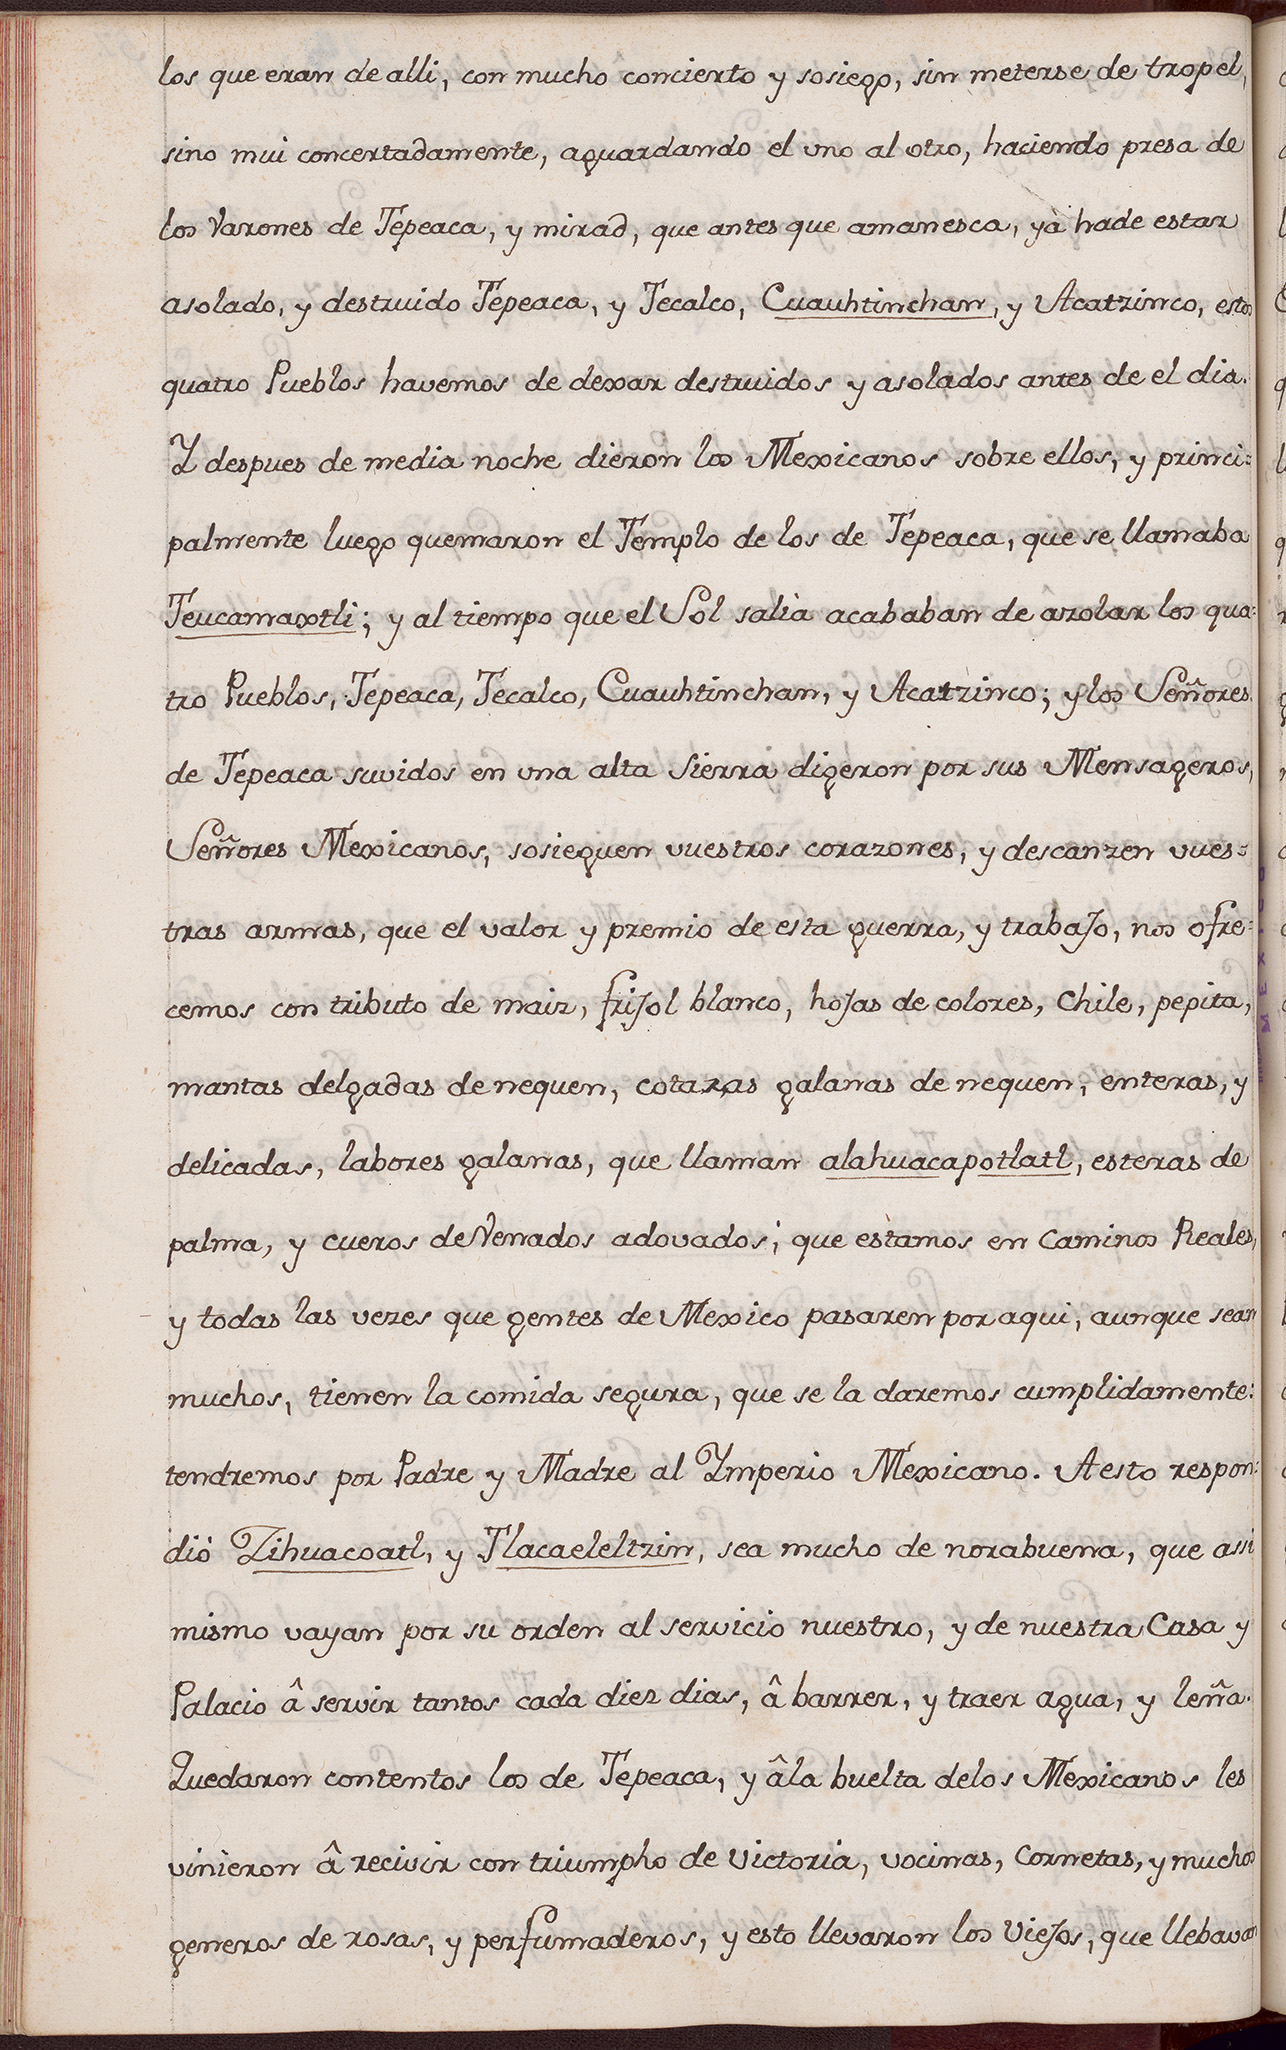 los que eran de alli, con mucho concierto y sosiego, sin meterse de tropel,
sino mui concertadamente, aguardando el uno al otro, haciendo presa de
los Varones de Tepeaca, y mirad, que antes que amanesca, yà hade estar
asolado, y destruido Tepeaca, y Tecalco, Cuauhtinchan, y Acatzinco, estos
quatro Pueblos havemos de dexar destruidos y asolados antes de el dia.
Y despues de media noche dieron los Mexicanos sobre ellos, y princi=
palmente luego quemaron el Templo de los de Tepeaca, que se llamaba
Teucamaxtli; y al tiempo que el Sol salia acababan de azolar los qua=
tro Pueblos, Tepeaca, Tecalco, Cuauhtinchan, y Acatzinco; y los Señores
de Tepeaca suvidos en una alta Sierra digeron por sus Mensageros,
Señores Mexicanos, sosieguen vuestros corazones, y descanzen vues=
tras armas, que el valor y premio de esta guerra, y trabajo, nos ofre=
cemos con tributo de maiz, frijol blanco, hojas de colores, Chile, pepita,
mantas delgadas de nequen, cotaras galanas de nequen, enteras, y
delicadas, labores galanas, que llaman alahuacapotlatl, esteras de
palma, y cueros de Venados adovados; que estamos en Caminos Reales,
y todas las vezes que gentes de Mexico pasaren por aqui, aunque sean
muchos, tienen la comida segura, que se la daremos cumplidamente:
tendremos por Padre y Madre al Ymperio Mexicano. A esto respon=
dió Zihuacoatl, y Tlacaeleltzin, sea mucho de norabuena, que assi
mismo vayan por su orden al servicio nuestro, y de nuestra Casa y
Palacio â servir tantos cada diez dias, â barrer, y traer agua, y leña.
Quedaron contentos los de Tepeaca, y âla buelta delos Mexicanos les
vinieron â recivir con triumpho de victoria, vocinas, Cornetas, y muchos
generos de rosas, y perfumaderos, y esto llevaron los Viejos, que llebavan